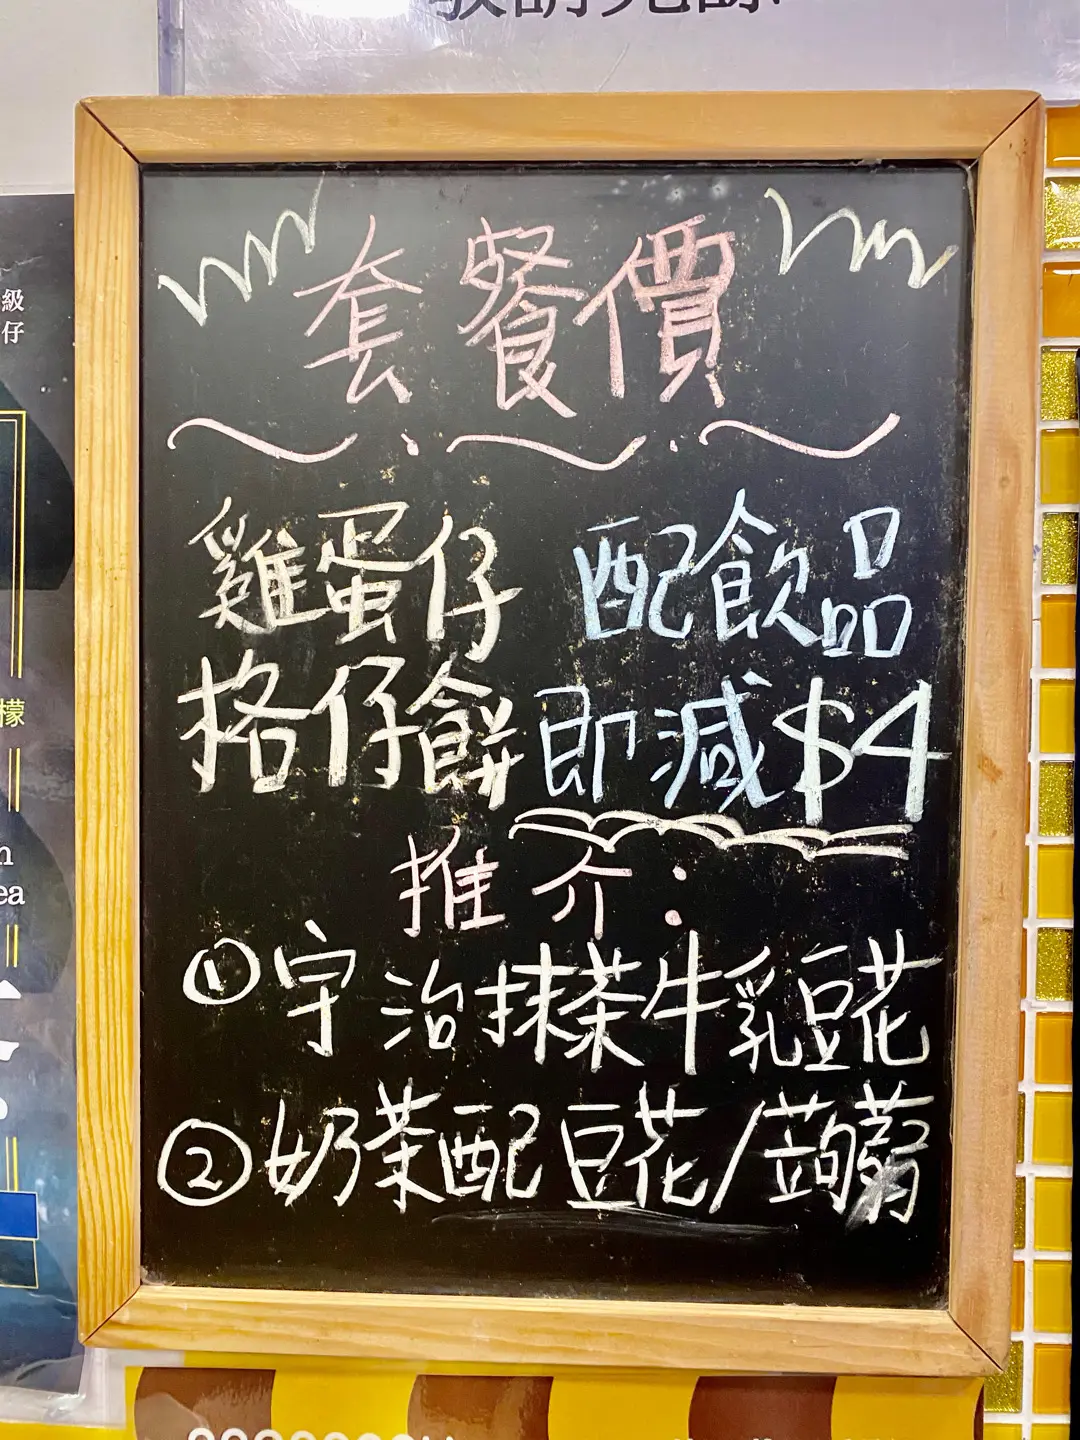 級
仔
檬
n
ea
套餐價
雞蛋仔 配飲品
格仔餅 即減$4
推介：
①宇治抹茶牛乳豆花
②奶茶配豆花/蒟蒻